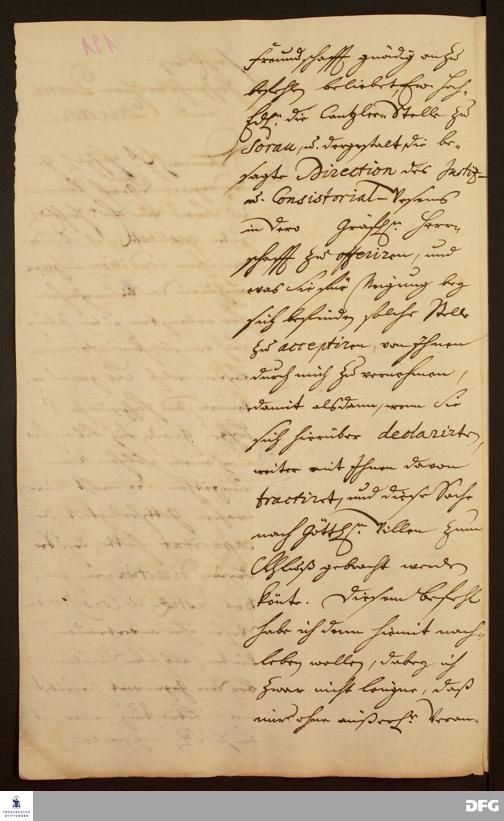 121
Freundschafft gnädig an zu
befehlen beliebet, Ew. Hoch-
Edl. die Cantzler-Stelle zu
Sorau, u. dergestalt die be-
sagte Direction des Justiz-
u. Consistorial-Wesens
in dero Gräfl. Herr-
schafft zu offeriren, und
was Sie für Neigung bey
sich befinden solche Stelle
zu acceptiren, von Ihnen
durch mich zu vernehmen,
damit alsdann, wenn Sie
sich hierüber declarirten,
weiter mit Ihnen davon
tractiret, und diese Sache
nach Göttl. Willen zum
Schluß gebracht werden
könte. Diesem Befehl
habe ich denn hiemit nach-
leben wollen, dabey ich
zwar nicht leugne, daß
mir ohne äußerl. Veran-
FRANCKESCHE
STIFTUNGEN
DFG